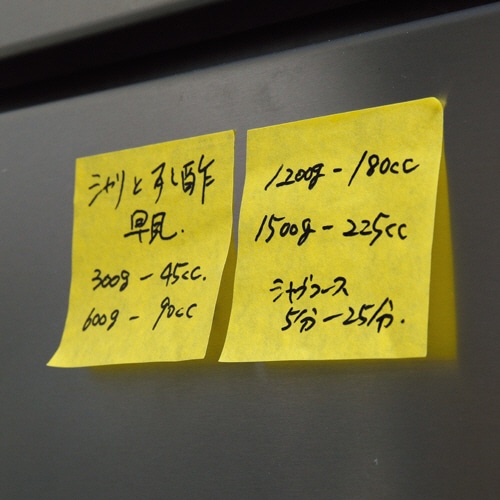 シャリとすし酢
早見.
300g - 45cc.
600g - 90cc
1200g - 180cc
1500g - 225cc
シャリコース
5分 - 25分.